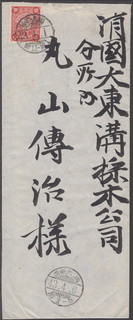 清國大東溝採木公司
分所內
丸山傳治様